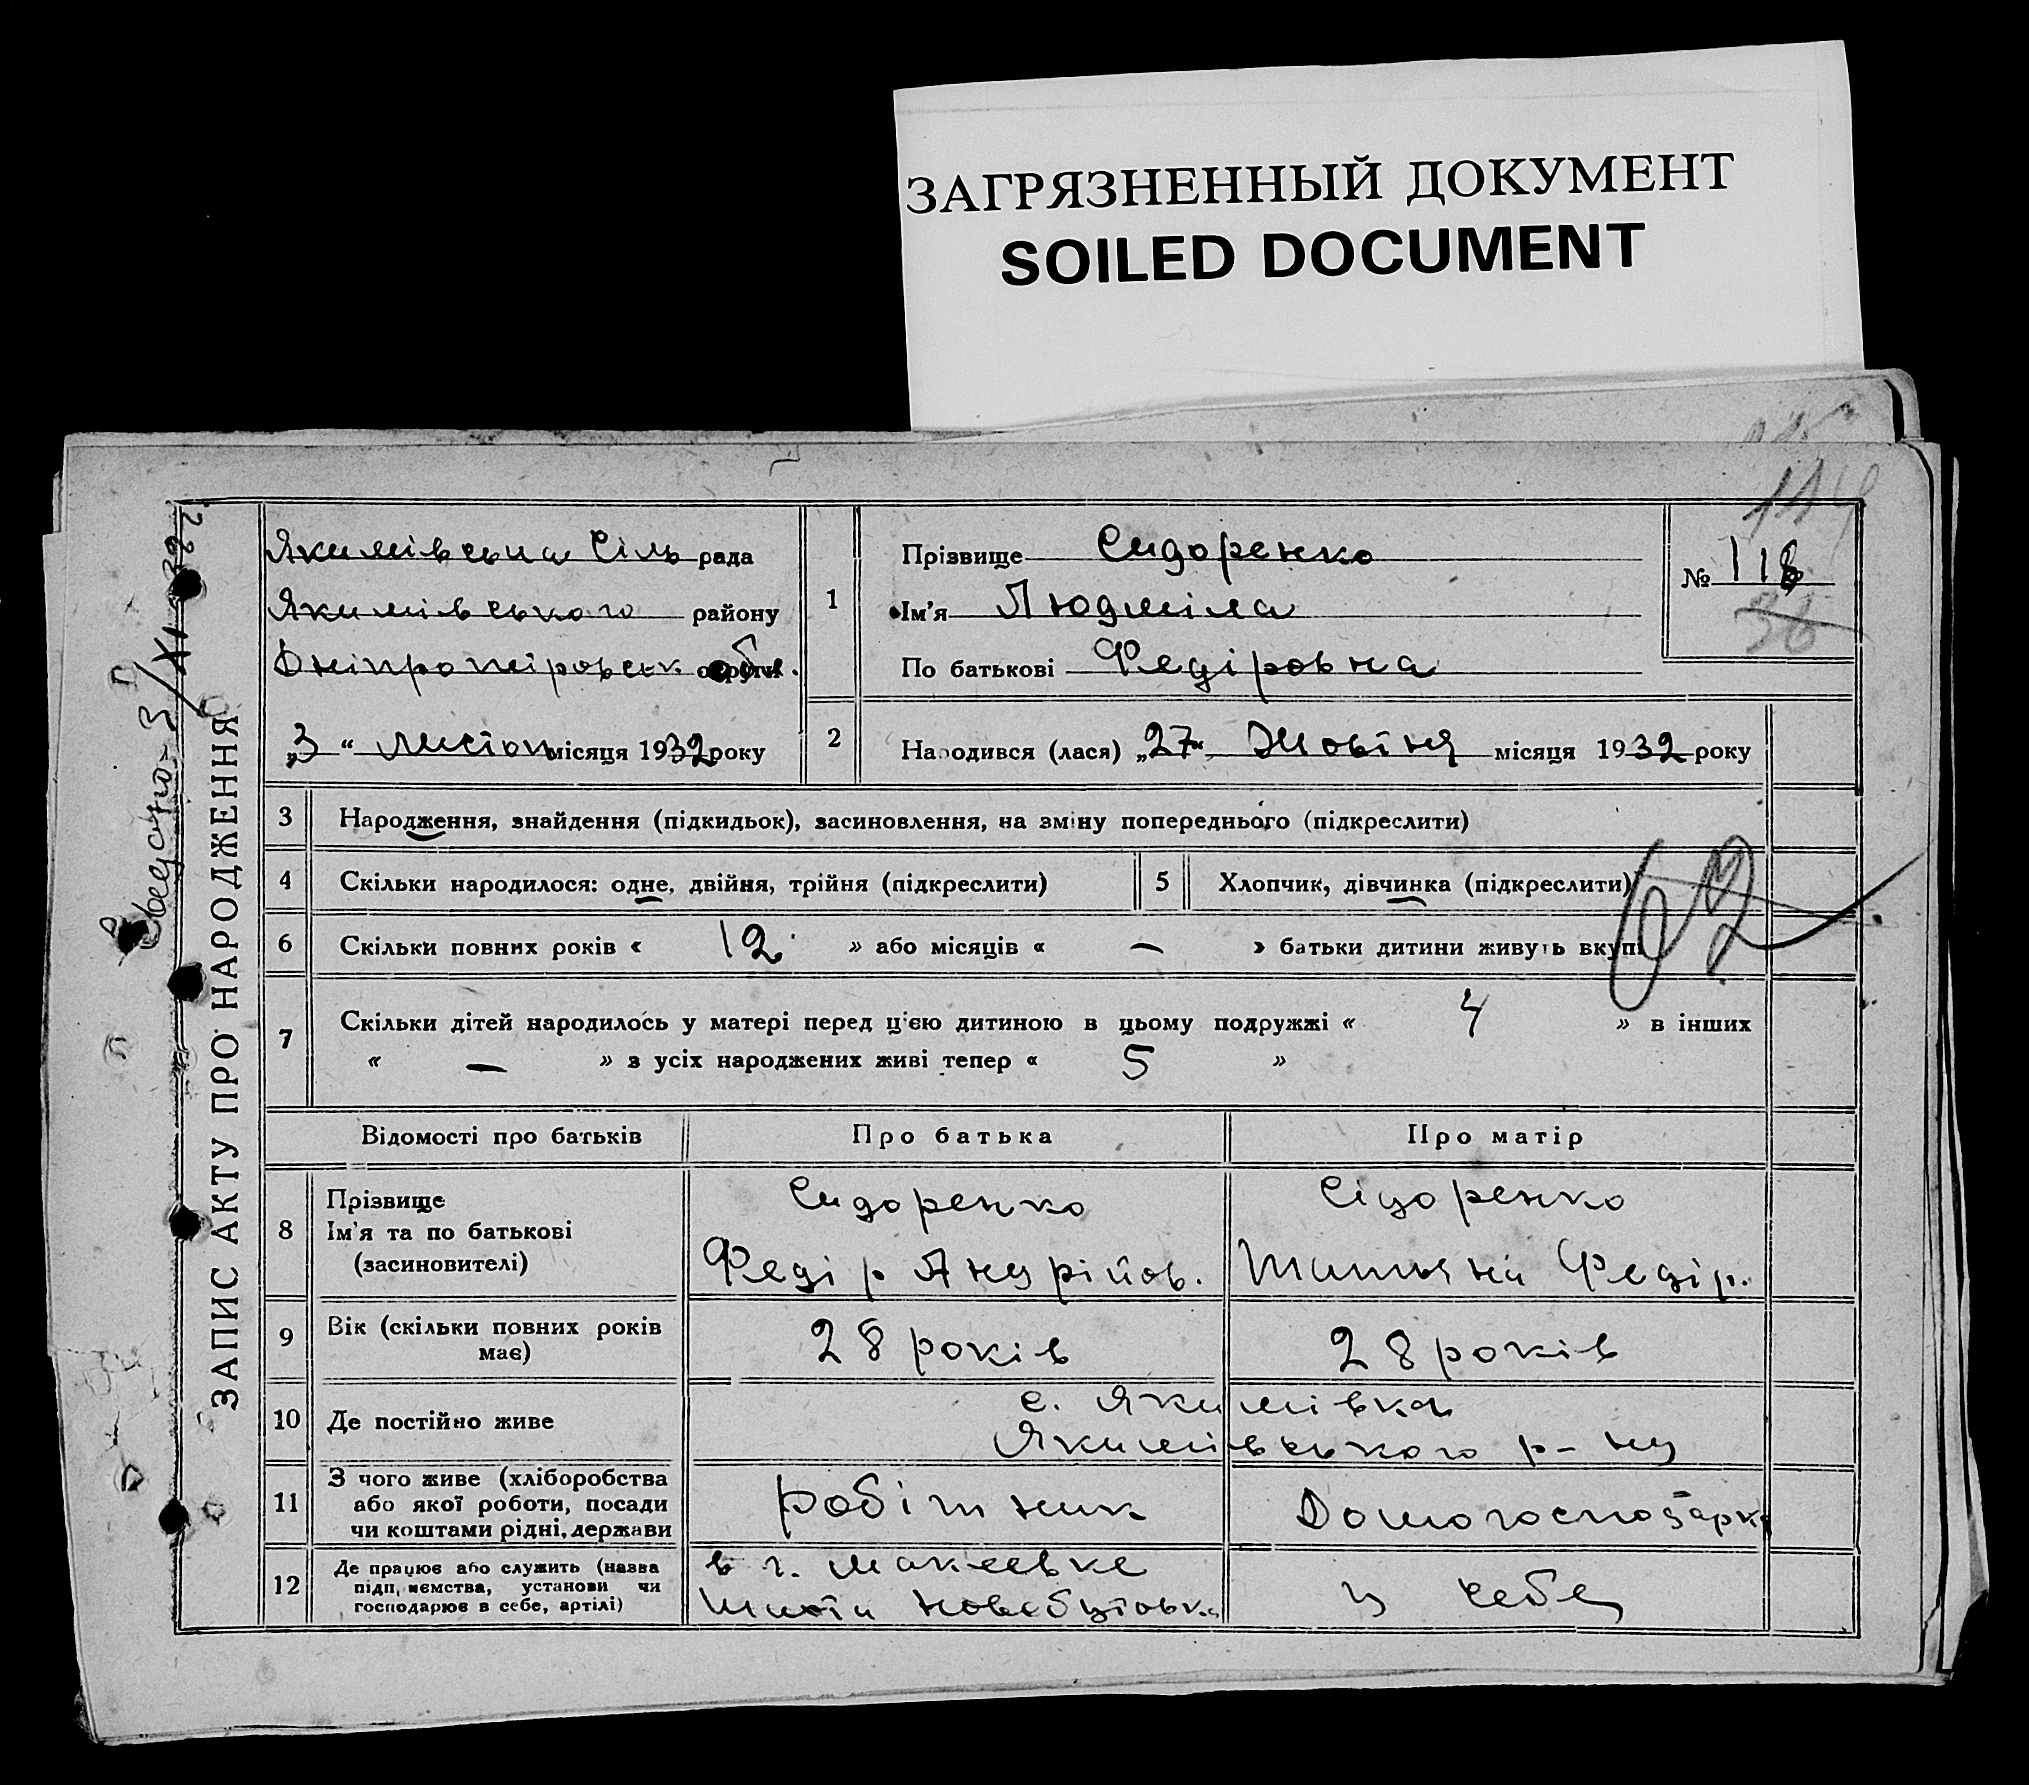 ЗАГРЯЗНЕННЫЙ ДОКУМЕНТ
SOILED DOCUMENT
114
ЗАПИС АКТУ ПРО НАРОДЖЕННЯ
Якимівська Сіль рада
Якимівського району
Дніпропетровськ. обл.
„3“ Листоп місяця 1932 року
1
Прізвище Сидоренко
Ім'я Людміла
По батькові Федіровна
№ 118
36
2
Народився (лася) „27“ Жовтня місяця 1932 року
3 Народження, знайдення (підкидьок), засиновлення, на зміну попереднього (підкреслити)
4 Скільки народилося: одне, двійня, трійня (підкреслити)
5 Хлопчик, дівчинка (підкреслити)
62
6 Скільки повних років « 12 » або місяців « — » батьки дитини живуть вкупі
7 Скільки дітей народилось у матері перед ц'єю дитиною в цьому подружжі « 4 » в інших
« — » з усіх народжених живі тепер « 5 »
Відомості про батьків Про батька Про матір
8 Прізвище
Ім'я та по батькові
(засиновителі)
Сидоренко
Федір Андрійов.
Сідоренко
Татьяна Федір.
9 Вік (скільки повних років
має)
28 років
28 років
10 Де постійно живе
с. Якимівка
Якимівського р-ну
11 З чого живе (хліборобства
або якої роботи, посади
чи коштами рідні, держави
робітник
Домогосподарка
12 Де працює або служить (назва
підприємства, установи чи
господарює в себе, артілі)
в г. Макеевке
у себе